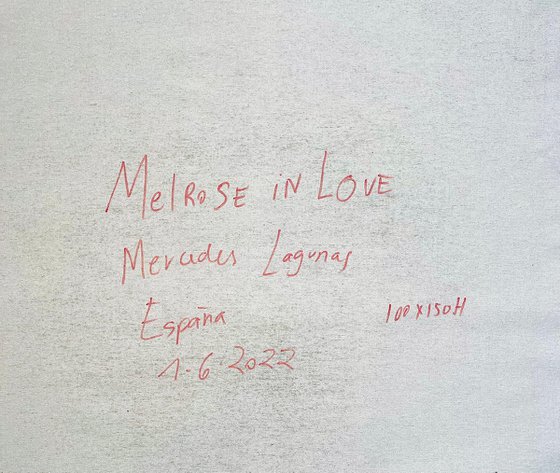 MelRoSE iN LOVE
Mercedes Lagunas
España
100x150H
1-6 2022